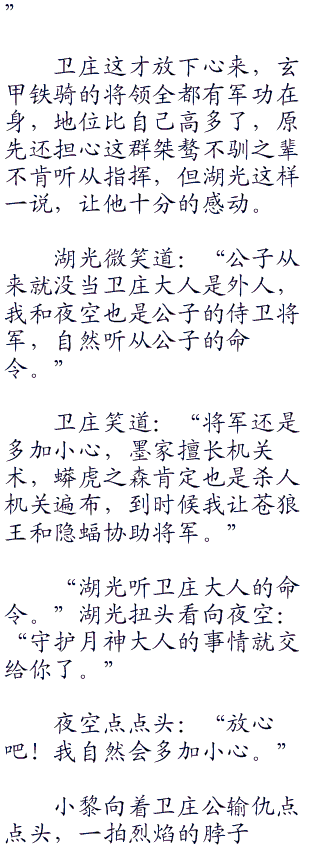 ”
卫庄这才放下心来，玄
甲铁骑的将领全都有军功在
身，地位比自己高多了，原
先还担心这群桀骜不驯之辈
不肯听从指挥，但湖光这样
一说，让他十分的感动。
湖光微笑道：“公子从
来就没当卫庄大人是外人，
我和夜空也是公子的侍卫将
军，自然听从公子的命
令。”
卫庄笑道：“将军还是
多加小心，墨家擅长机关
术，蟒虎之森肯定也是杀人
机关遍布，到时候我让苍狼
王和隐蝠协助将军。”
“湖光听卫庄大人的命
令。”湖光扭头看向夜空：
“守护月神大人的事情就交
给你了。”
夜空点点头：“放心
吧！我自然会多加小心。”
小黎向着卫庄公输仇点
点头，一拍烈焰的脖子